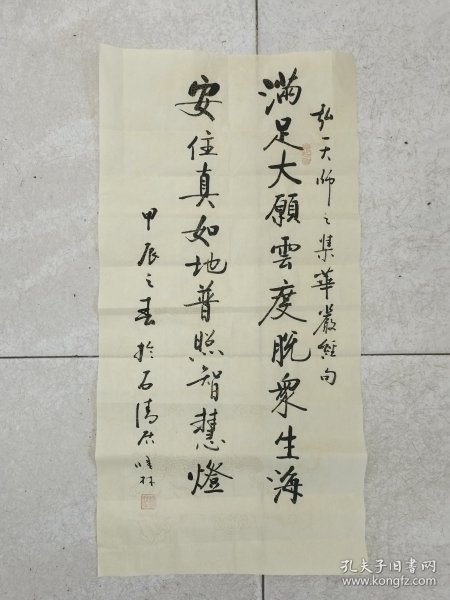 弘一大师之集華嚴經句
满足大願雲度脱衆生海
安住真如地普照智慧燈
甲辰之春於石清居
孔夫子旧书网
www.kongfz.com